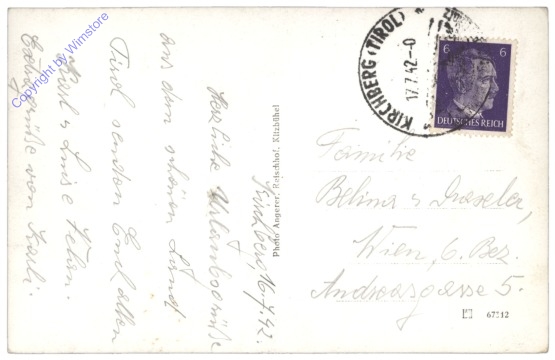 Kirchberg, 16.7.42.
Herzliche Urlaubsgrüße
aus dem schönen Land
Tirol senden Euch allen
Karl u Luise
Extragrüße von Karli.
Photo Angerer, Reischhof, Kitzbühel
KIRCHBERG (TIROL)
17.7.42-0
6 6
DEUTSCHES REICH
Familie
Belina u
Wien, 6. Bez.
Andreasgasse 5.
67712
Copyright by Winstore